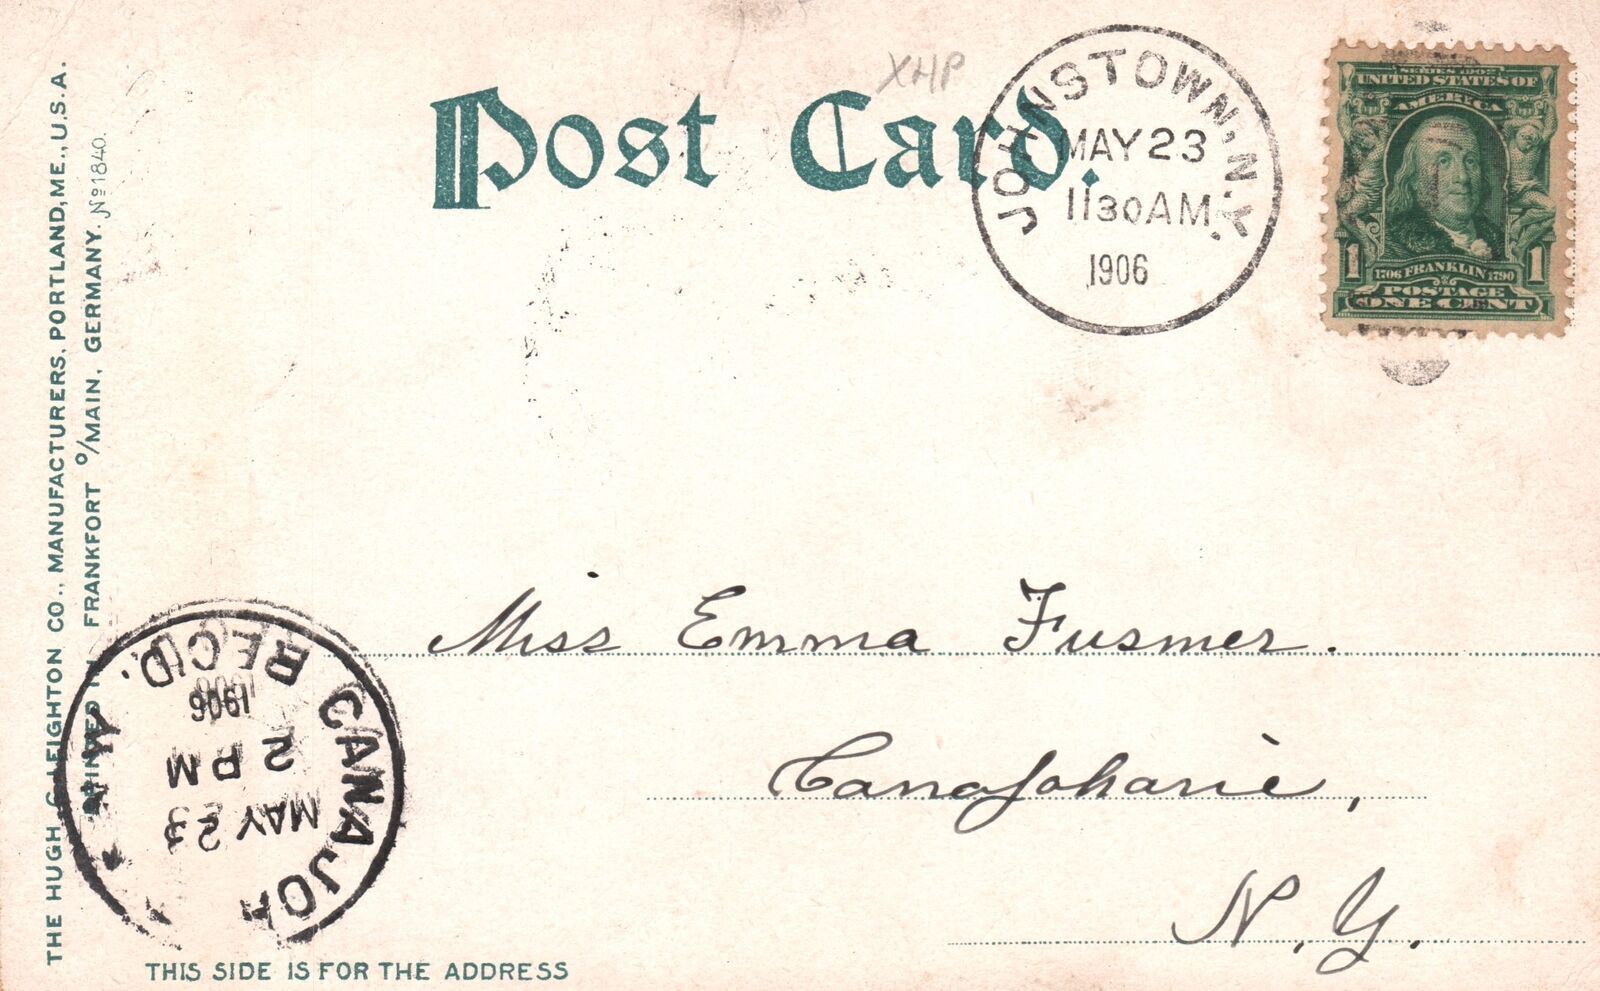 XHP
Post Card.
JOHNSTOWN, N.Y.
MAY 23
1130AM
1906
SERIES 1902
UNITED STATES OF
AMERICA
1 1706 FRANKLIN 1790 1
POSTAGE
ONE CENT
THE HUGH C. LEIGHTON CO., MANUFACTURERS, PORTLAND, ME., U.S.A.
PRINTED IN FRANKFORT O/MAIN, GERMANY. No 1840.
Miss Emma Fusmer.
Canajoharie,
N.Y.
CANAJOH
N.Y.
MAY 23
2 PM
1906
REC'D.
THIS SIDE IS FOR THE ADDRESS